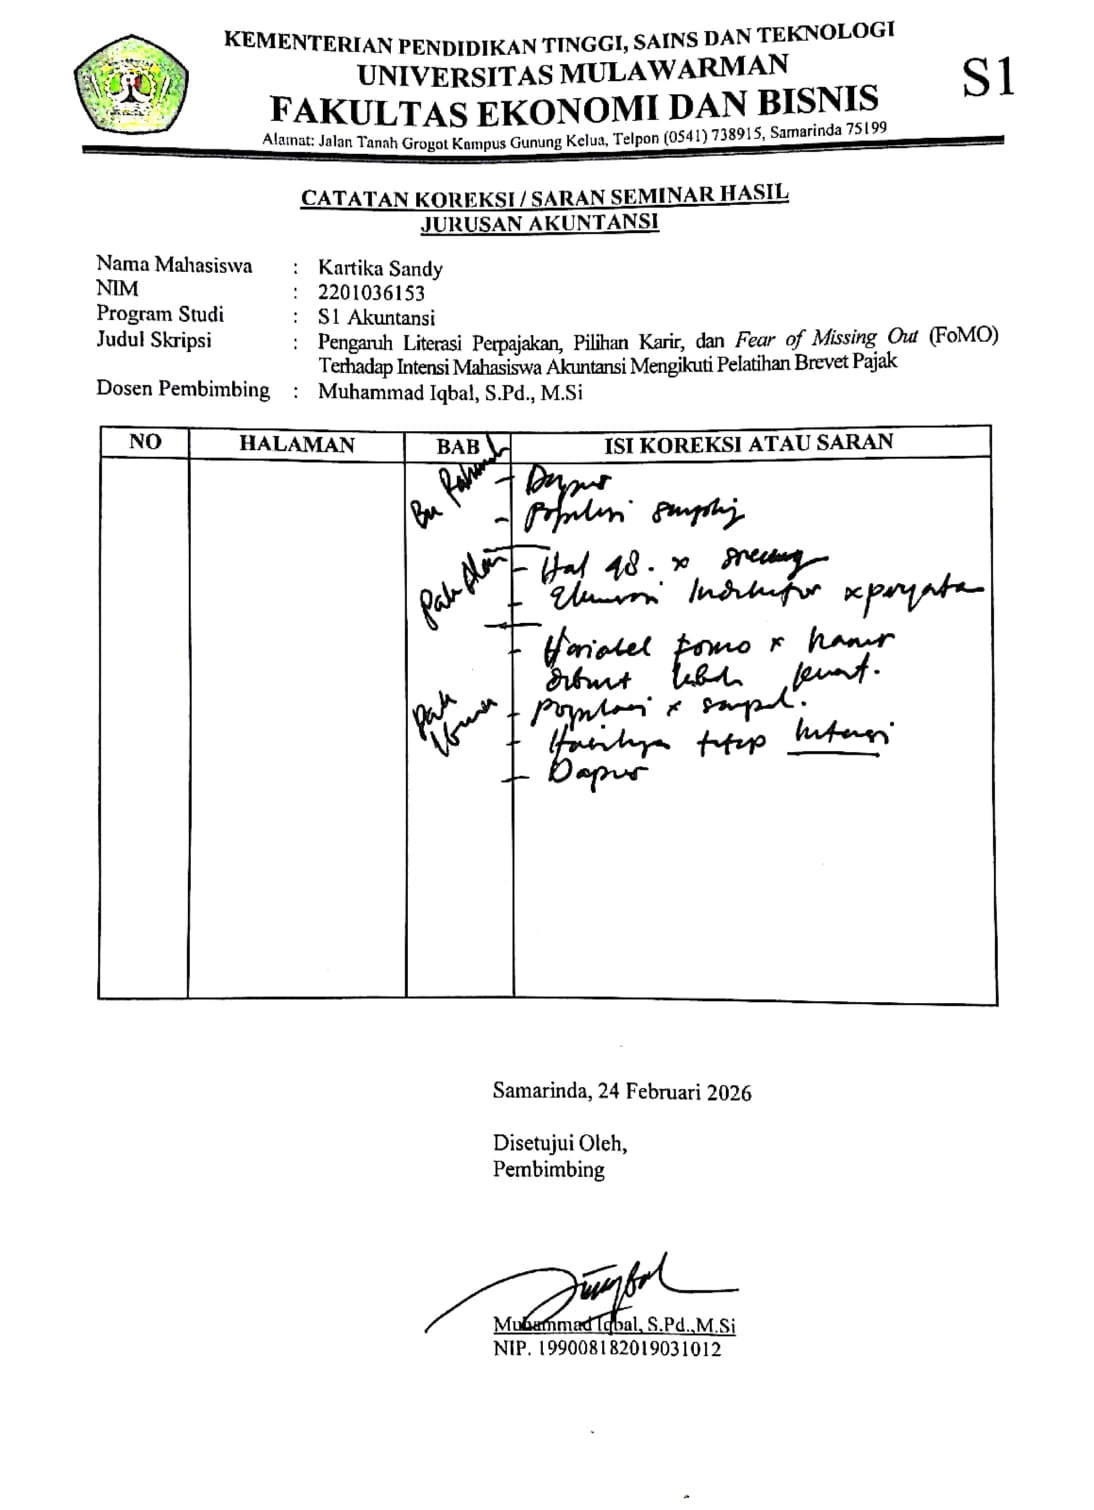 KEMENTERIAN PENDIDIKAN TINGGI, SAINS DAN TEKNOLOGI
UNIVERSITAS MULAWARMAN
FAKULTAS EKONOMI DAN BISNIS
Alamat: Jalan Tanah Grogot Kampus Gunung Kelua, Telpon (0541) 738915, Samarinda 75199
S1
CATATAN KOREKSI / SARAN SEMINAR HASIL
JURUSAN AKUNTANSI
Nama Mahasiswa : Kartika Sandy
NIM : 2201036153
Program Studi : S1 Akuntansi
Judul Skripsi : Pengaruh Literasi Perpajakan, Pilihan Karir, dan Fear of Missing Out (FoMO)
Terhadap Intensi Mahasiswa Akuntansi Mengikuti Pelatihan Brevet Pajak
Dosen Pembimbing : Muhammad Iqbal, S.Pd., M.Si
NO HALAMAN BAB ISI KOREKSI ATAU SARAN
Bu - Dapus
- Populasi
Pak - Hal 48.
- Indikator
- Variabel Fomo x harus
dibuat lebih kuat.
Pak - Populasi x sampel.
- Hasilnya tetap
- Dapus
Samarinda, 24 Februari 2026
Disetujui Oleh,
Pembimbing
Muhammad Iqbal, S.Pd.,M.Si
NIP. 199008182019031012